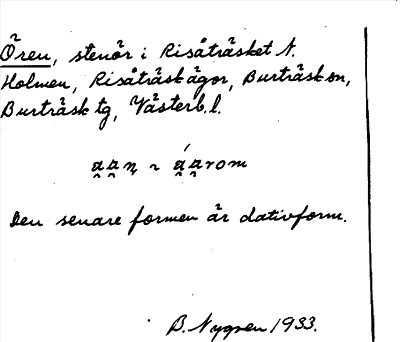 Ören, stenör i Risåträsket N.
Holmen, Risåträsk ägor, Burträsk sn,
Burträsk tg, Västerb. l.
a̯a̯ṇ ~ á̯a̯rom
Den senare formen är dativform.
B. Nygren 1933.